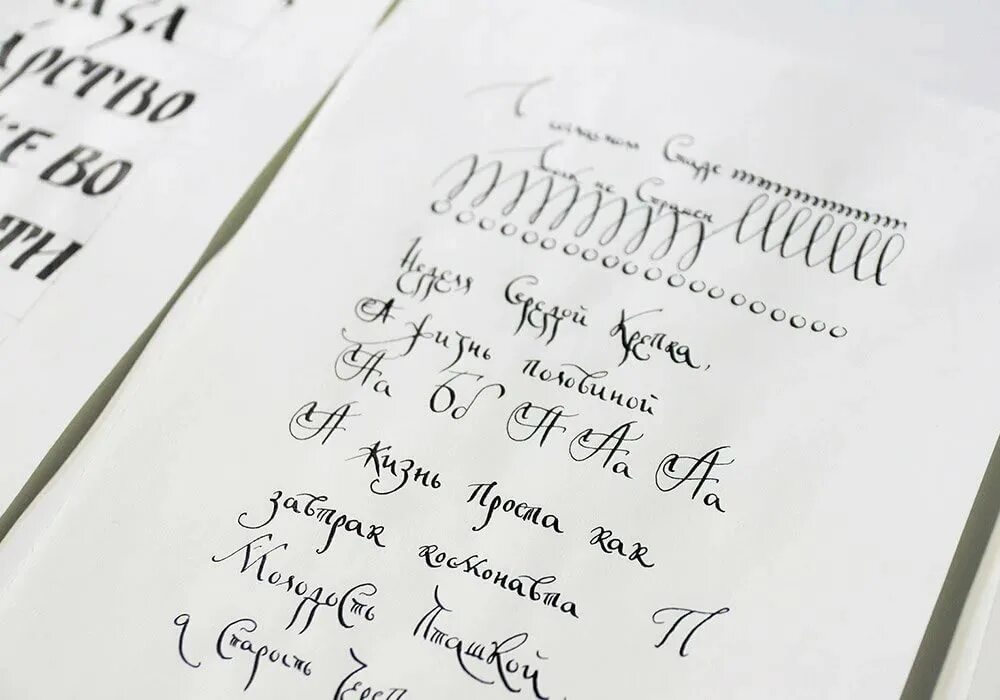 АЗА
АРСТВО
Е ВО
ТИ
Стаде
не Страшен
Неделя Середой Крепка,
А жизнь половиной
Аа Бб А Аа Аа
А Жизнь Проста как
завтрак космонавта П
Молодость Пташкой,
а Старость Череп